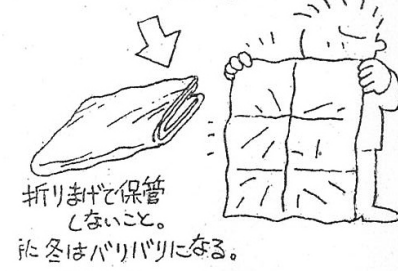 折りまげて保管
しないこと。
に冬はバリバリになる。